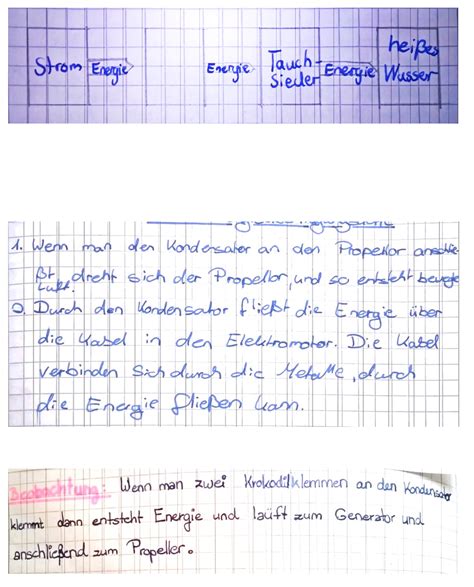 Strom Energie Energie Tauch-
sieder Energie heißes
Wasser
1. Wenn man den Kondensator an den Propellor anschlie-
ßt dreht sich der Propellor, und so entsteht bewegte
Luft.
2. Durch den Kondensator fließt die Energie über
die Kabel in den Elektromotor. Die Kabel
verbinden sich durch die Metalle, durch
die Energie fließen kann.
Beobachtung: Wenn man zwei Krokodilklemmen an den Kondensator
klemmt dann entsteht Energie und läuft zum Generator und
anschließend zum Propeller.